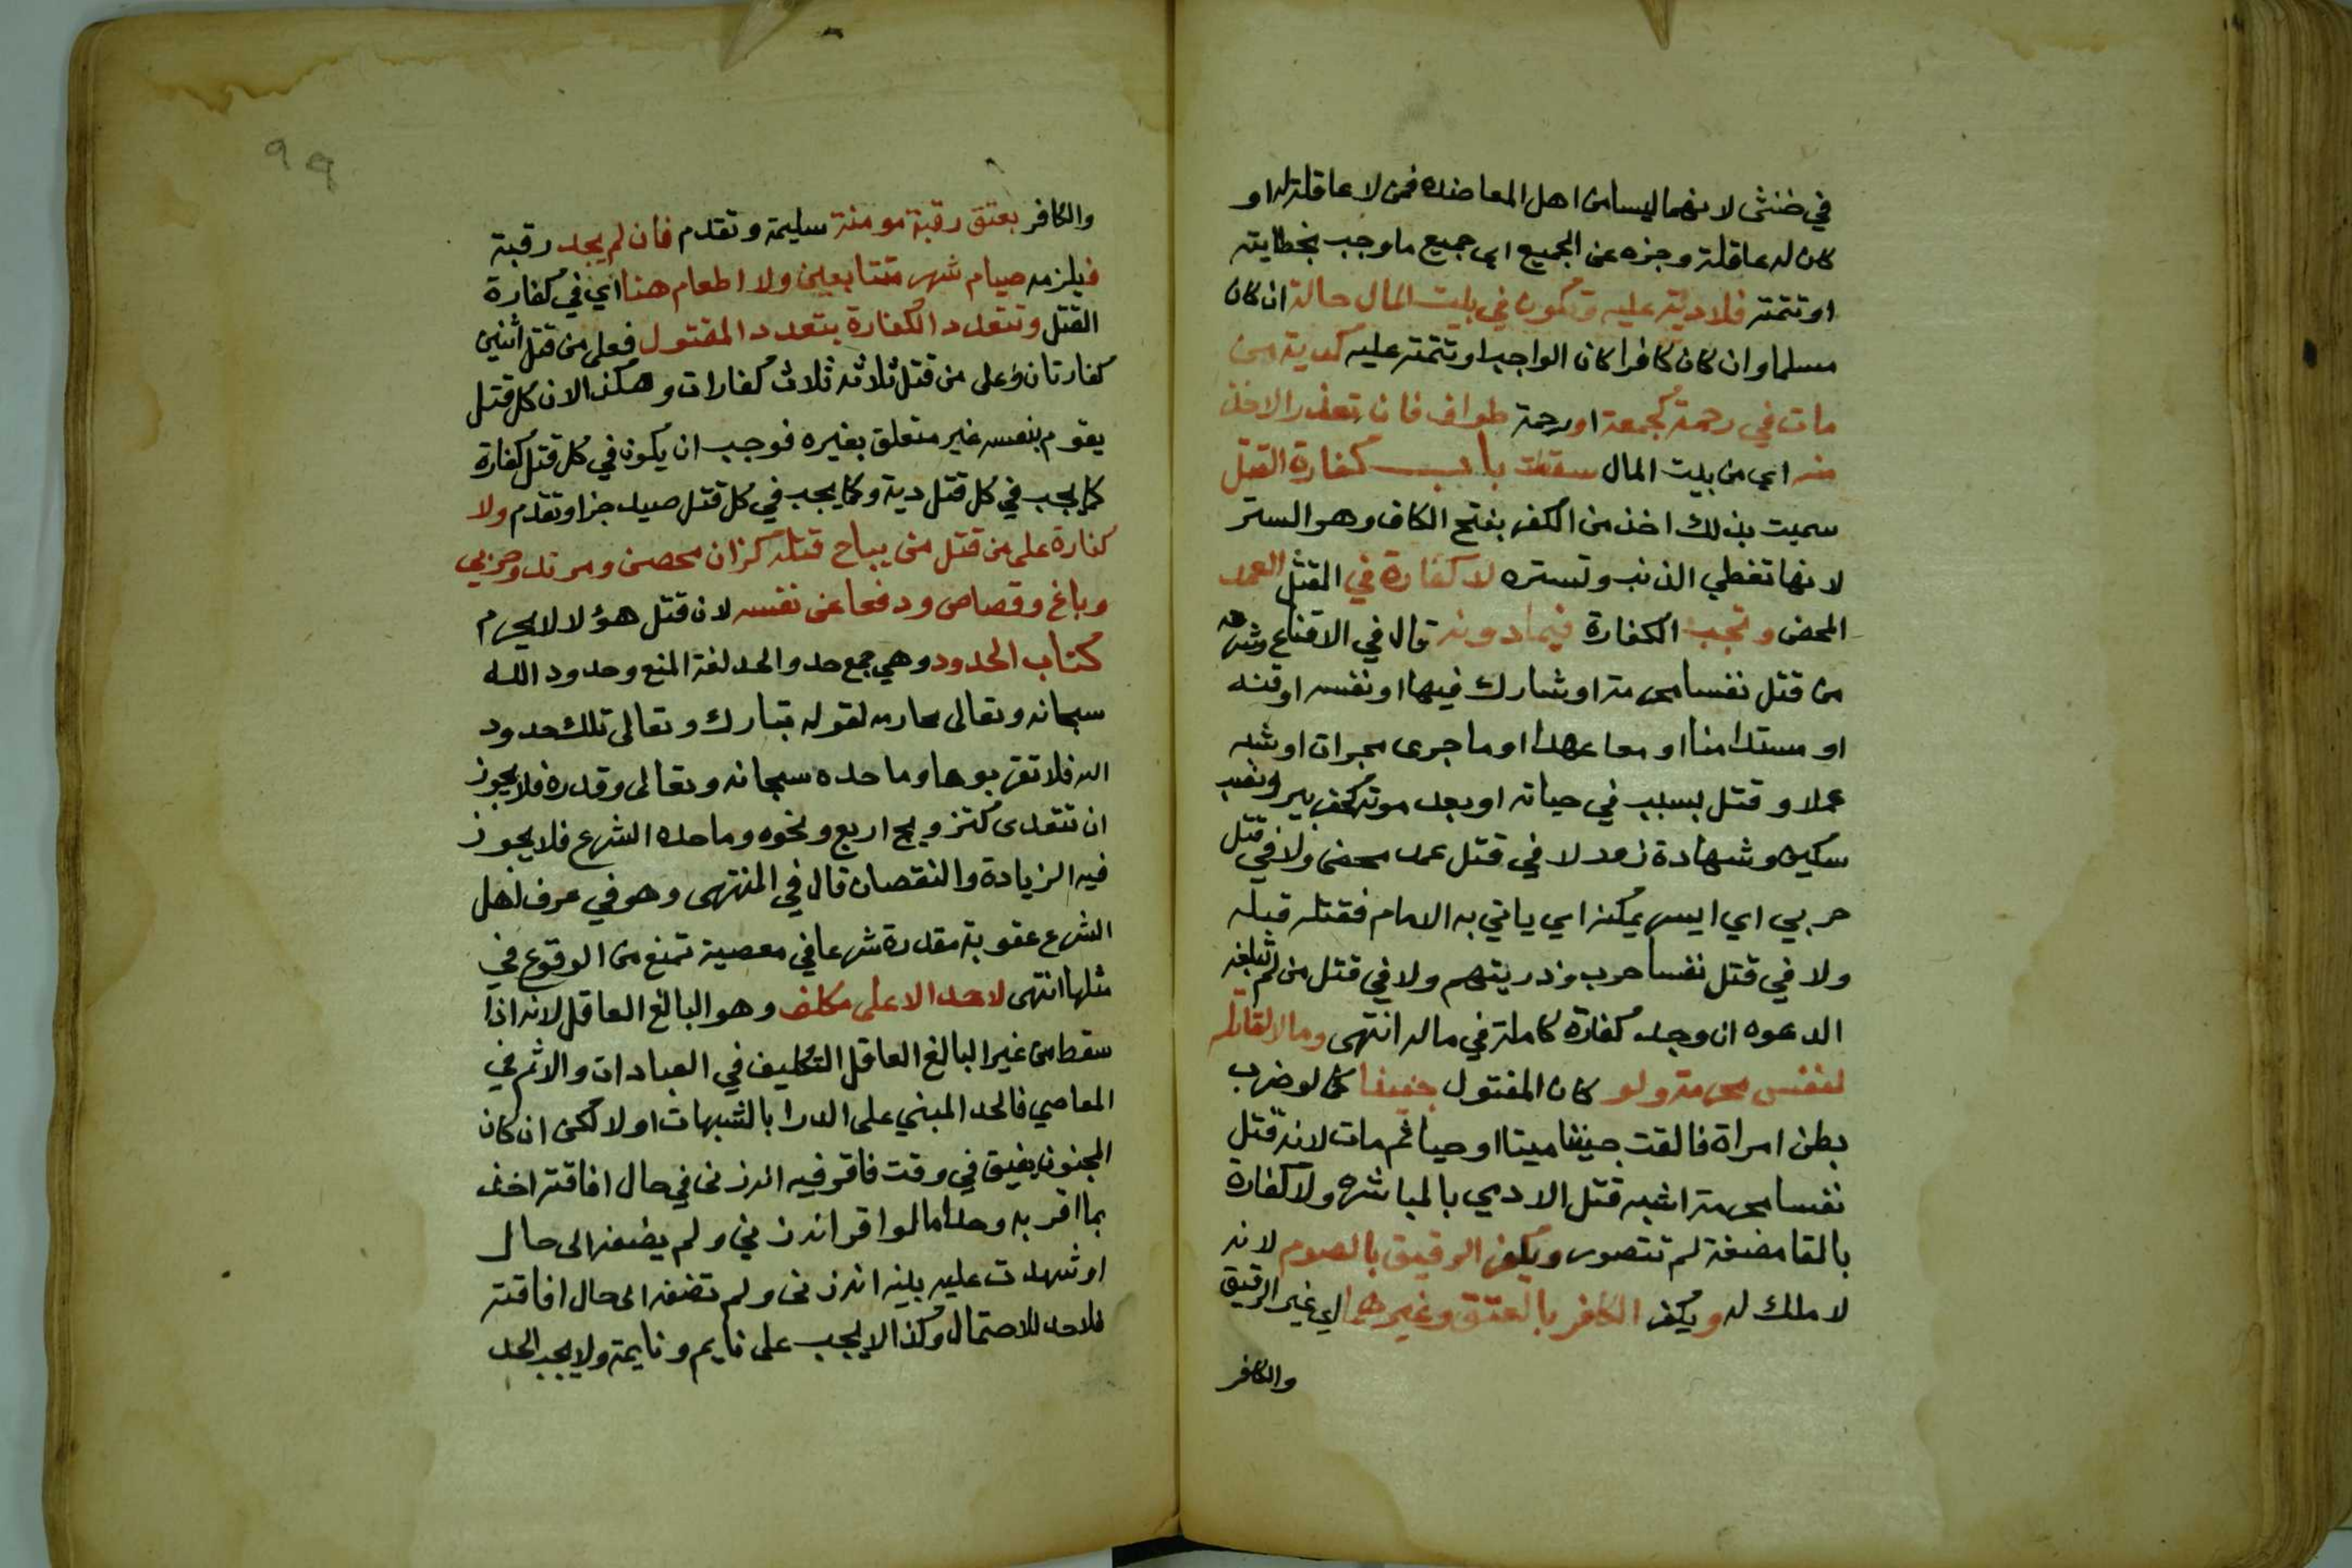 في خنثى لانهما ليسا من اهل المعاضده فمن لا عاقلة له او
كان له عاقلة وعجزه عن الجميع اي جميع ما وجب بخطايته
او تتمته فلا دية عليه وتكون في بيت المال حالة ان كان
مسلما وان كان كافرا كان الواجب او تتمته عليه كدية من
مات في زحمة كجمعة او زحمة طواف فان تعذر الاخذ
منه اي من بيت المال سقطت باب كفارة القتل
سميت بذلك اخذ من الكفر بفتح الكاف وهو الستر
لانها تغطي الذنب وتستره لا كفارة في القتل العمد
المحض وتجب الكفارة فيما دونه قال في الاقناع وشرحه
من قتل نفسا محرمة او شارك فيها او نفسه او قنه
او مستامنا او معاهدا او ما جرى مجراه او شبه
عمد او قتل بسبب في حياته او بعد موته كحفر بير ونصب
سكين وشهادة زور لا في قتل عمد محض ولا في قتل
حربي اي اسير يمكنه اي ياتي به الامام فقتله قبله
ولا في قتل نفسا حرب وذريتهم ولا في قتل من لم تبلغه
الدعوه ان وجد كفارة كاملة في ماله انتهى وما لا لقاتل
لنفس محرمة ولو كان المقتول جنينا كما لو ضرب
بطن امراة فالقت جنينا ميتا او حيا ثم مات لانه قتل
نفسا محرمة اشبه قتل الادمي بالمباشره ولا كفارة
بالقا مضغة لم تتصور ويكفر الرقيق بالصوم لانه
لا ملك له ويكفر الكافر بالعتق وغيرهما اي غير الرقيق
والكافر
٩٩
والكافر بعتق رقبة مومنة سليمة وتقدم فان لم يجد رقبة
فيلزمه صيام شهر متتابعين ولا اطعام هنا اي في كفارة
القتل وتتعدد الكفارة بتعدد المقتول فعلى من قتل اثنين
كفارتان وعلى من قتل ثلاثه ثلاث كفارات وهكذا لان كل قتل
يقوم بنفسه غير متعلق بغيره فوجب ان يكون في كل قتل كفارة
كما يجب في كل قتل دية وكما يجب في كل قتل صيد جزا وتقدم ولا
كفارة على من قتل من يباح قتله كزان محصن ومرتد وحربي
وباغ وقصاص ودفعا عن نفسه لان قتل هؤلا لا يحرم
كتاب الحدود وهي جمع حد والحد لغة المنع وحدود الله
سبحانه وتعالى محارمه لقوله تبارك وتعالى تلك حدود
الله فلا تقربوها وما حده سبحانه وتعالى وقدره فلا يجوز
ان تتعدى كتزويج اربع ونحوه وما حده الشرع فلا يجوز
فيه الزيادة والنقصان قال في المنتهى وهو في عرف اهل
الشرع عقوبة مقدرة شرعا في معصية تمنع من الوقوع في
مثلها انتهى لا حد الا على مكلف وهو البالغ العاقل لانه اذا
سقط من غير البالغ العاقل التكليف في العبادات والاثم في
المعاصي فالحد المبني على الدرا بالشبهات اولا لكن ان كان
المجنون يفيق في وقت فاقر فيه انه زنى في حال افاقته اخذ
بما اقر به وحد اما لو اقر انه زنى ولم يضفه الى حال
او شهدت عليه بينه انه زنى ولم تضفه الى حال افاقته
فلا حد للاحتمال وكذا لا يجب على نايم ونايمة ولا يجب الحد